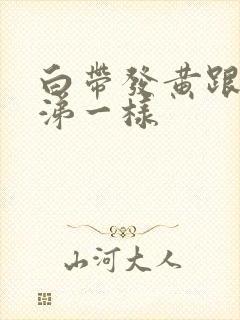 白帶發黃跟
涕一樣
山河大人